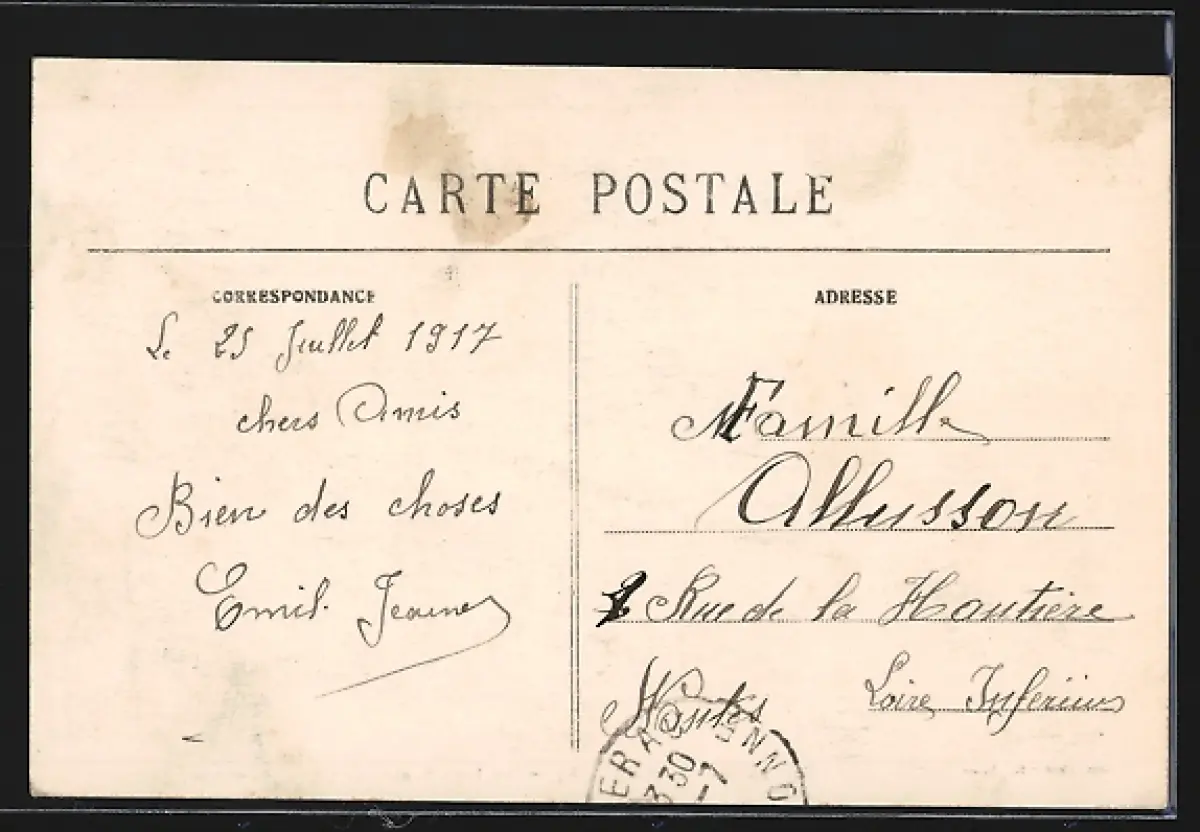 CARTE POSTALE
CORRESPONDANCE
ADRESSE
Le 25 Juillet 1917
chers Amis
Bien des choses
Emil. Jeanne
Famille
Allusson
2 Rue de la Hautière
Nantes
Loire Inférieure
30
-7